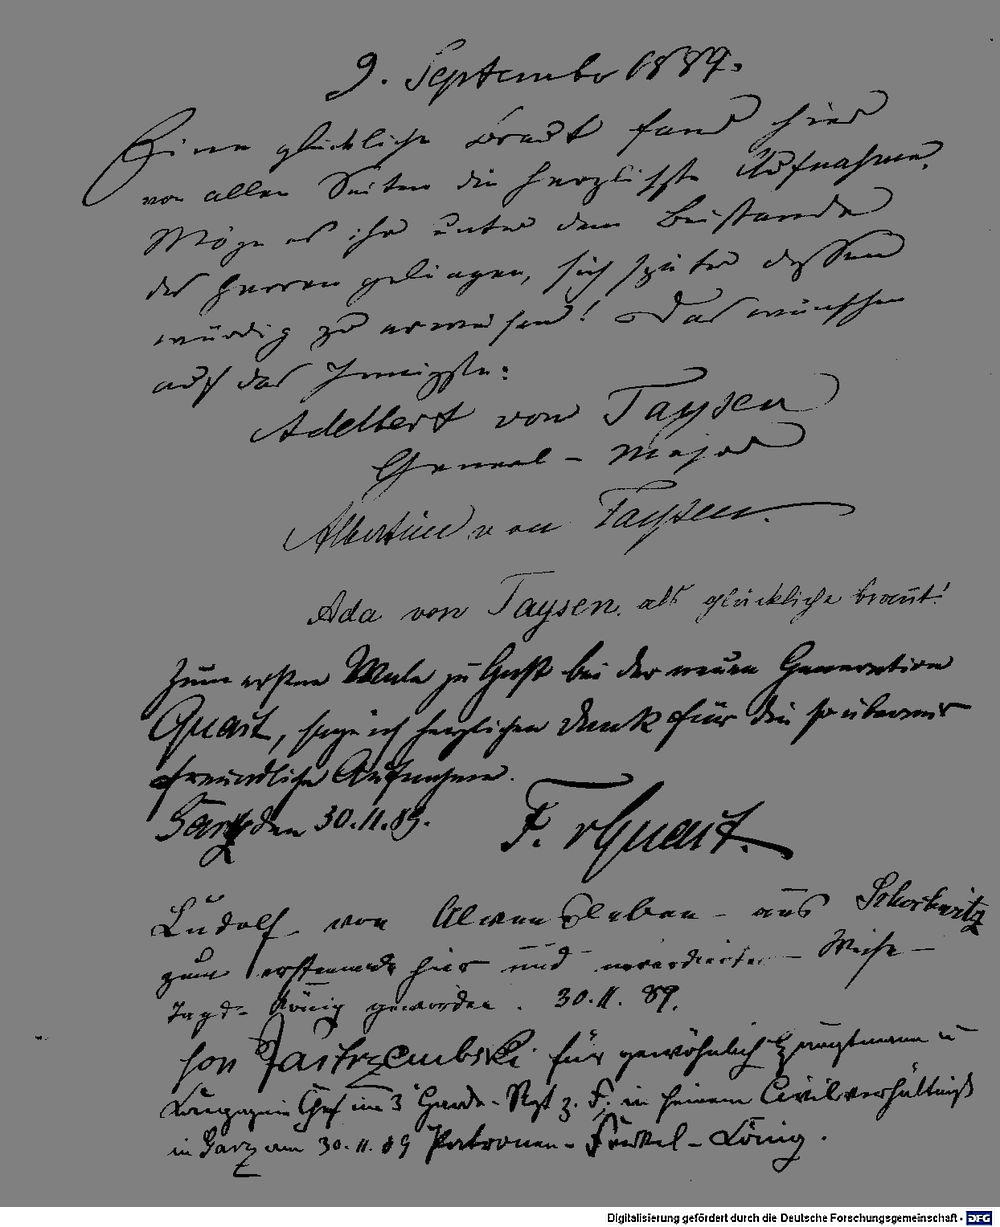 9. September 1889.
Eine glückliche Braut fand hier
von allen Seiten die herzlichste Aufnahme.
Möge es ihr unter dem Beistande
des Herren gelingen, sich später dessen
würdig zu erweisen! Das wünschen
auf das Innigste:
Adelbert von Taysen
General-Major
Albertine von Taysen.
Ada von Taysen. als glückliche Braut!
Zum ersten Male zu Gast bei der neuen Generation
Quast, sage ich herzlichen Dank für die so überaus
freundliche Aufnahme.
Garz den 30.11.89. F. v Quast.
Ludolf von Alvensleben - aus Schochwitz
zum erstenmale hier und unverdienter - Weise -
Jagd-König geworden. 30.11.89.
von Jastrzembski für gewöhnlich Hauptmann u
Compagnie Chef im 3 Garde-Rgt z. F. in seinem Civilverhältniß
in Garz am 30.11.89 Patronen-König.